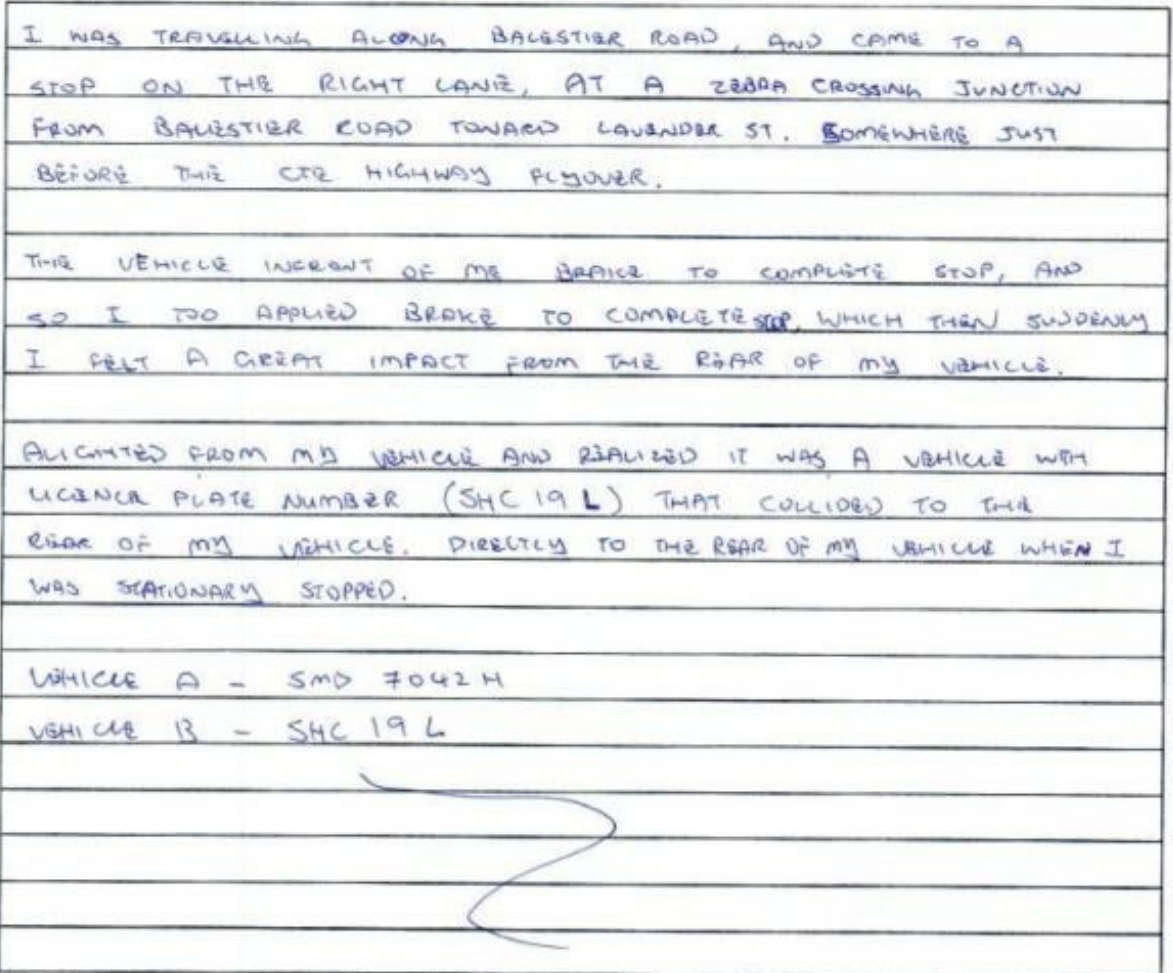 I WAS TRAVELLING ALONG BALESTIER ROAD, AND CAME TO A
STOP ON THE RIGHT LANE, AT A ZEBRA CROSSING JUNCTION
FROM BALESTIER ROAD TOWARD LAVENDER ST. SOMEWHERE JUST
BEFORE THE CTE HIGHWAY FLYOVER.
THE VEHICLE INFRONT OF ME BRAKE TO COMPLETE STOP, AND
SO I TOO APPLIED BRAKE TO COMPLETE STOP, WHICH THEN SUDDENLY
I FELT A GREAT IMPACT FROM THE REAR OF MY VEHICLE.
ALIGHTED FROM MY VEHICLE AND REALIZED IT WAS A VEHICLE WITH
LICENCE PLATE NUMBER (SHC 19 L) THAT COLLIDED TO THE
REAR OF MY VEHICLE. DIRECTLY TO THE REAR OF MY VEHICLE WHEN I
WAS STATIONARY STOPPED.
VEHICLE A - SMD 7042 H
VEHICLE B - SHC 19 L